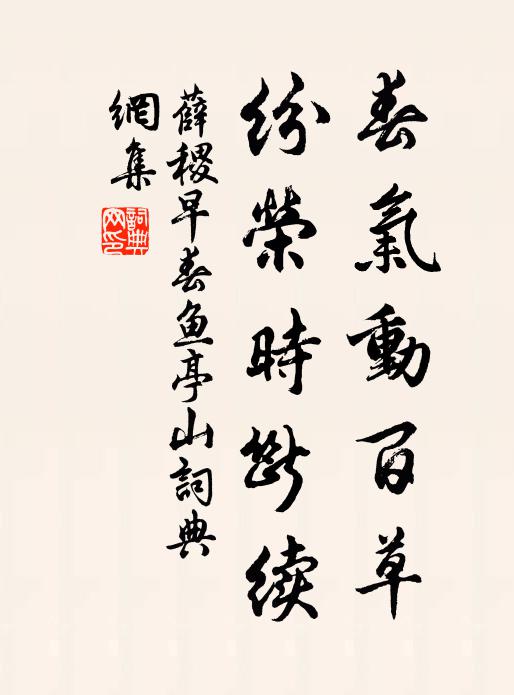 春氣動百草
紛榮時斷續
薛稷早春魚亭山詞典
網集
詞典
网印